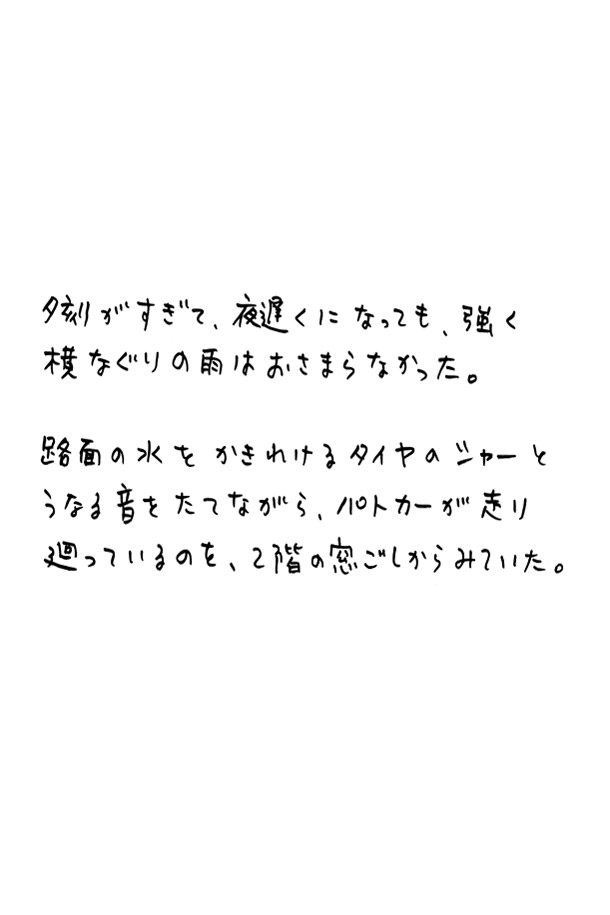 夕刻がすぎて、夜遅くになっても、強く
横なぐりの雨はおさまらなかった。
路面の水をかきわけるタイヤのジャーと
うなる音をたてながら、パトカーが走り
廻っているのを、2階の窓ごしからみていた。